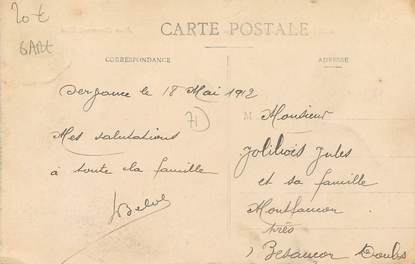 20 €
GARE
CARTE POSTALE
CORRESPONDANCE
ADRESSE
le 18 Mai 1912
71
Mes salutations
à toute la famille
M Monsieur
Jolibois Jules
et sa famille
Montfaucon
près
Besançon Doubs